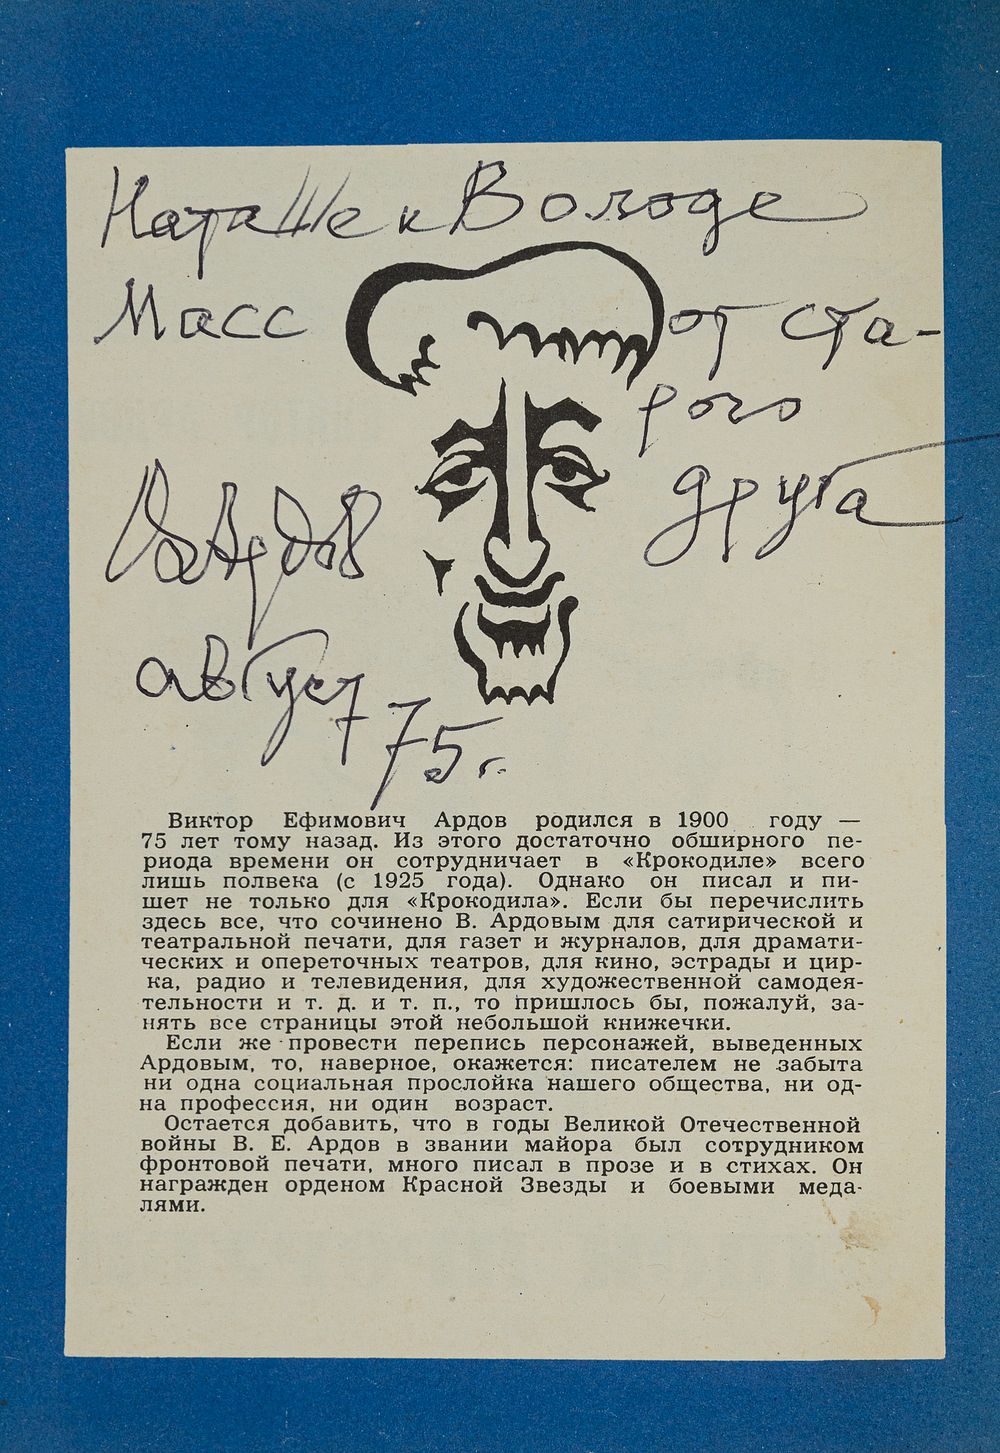 Наташе и Володе
Масс
от ста-
рого
друга
В. Ардов
август
75 г.
Виктор Ефимович Ардов родился в 1900 году —
75 лет тому назад. Из этого достаточно обширного пе-
риода времени он сотрудничает в «Крокодиле» всего
лишь полвека (с 1925 года). Однако он писал и пи-
шет не только для «Крокодила». Если бы перечислить
здесь все, что сочинено В. Ардовым для сатирической и
театральной печати, для газет и журналов, для драмати-
ческих и опереточных театров, для кино, эстрады и цир-
ка, радио и телевидения, для художественной самодея-
тельности и т. д. и т. п., то пришлось бы, пожалуй, за-
нять все страницы этой небольшой книжечки.
Если же провести перепись персонажей, выведенных
Ардовым, то, наверное, окажется: писателем не забыта
ни одна социальная прослойка нашего общества, ни од-
на профессия, ни один возраст.
Остается добавить, что в годы Великой Отечественной
войны В. Е. Ардов в звании майора был сотрудником
фронтовой печати, много писал в прозе и в стихах. Он
награжден орденом Красной Звезды и боевыми меда-
лями.